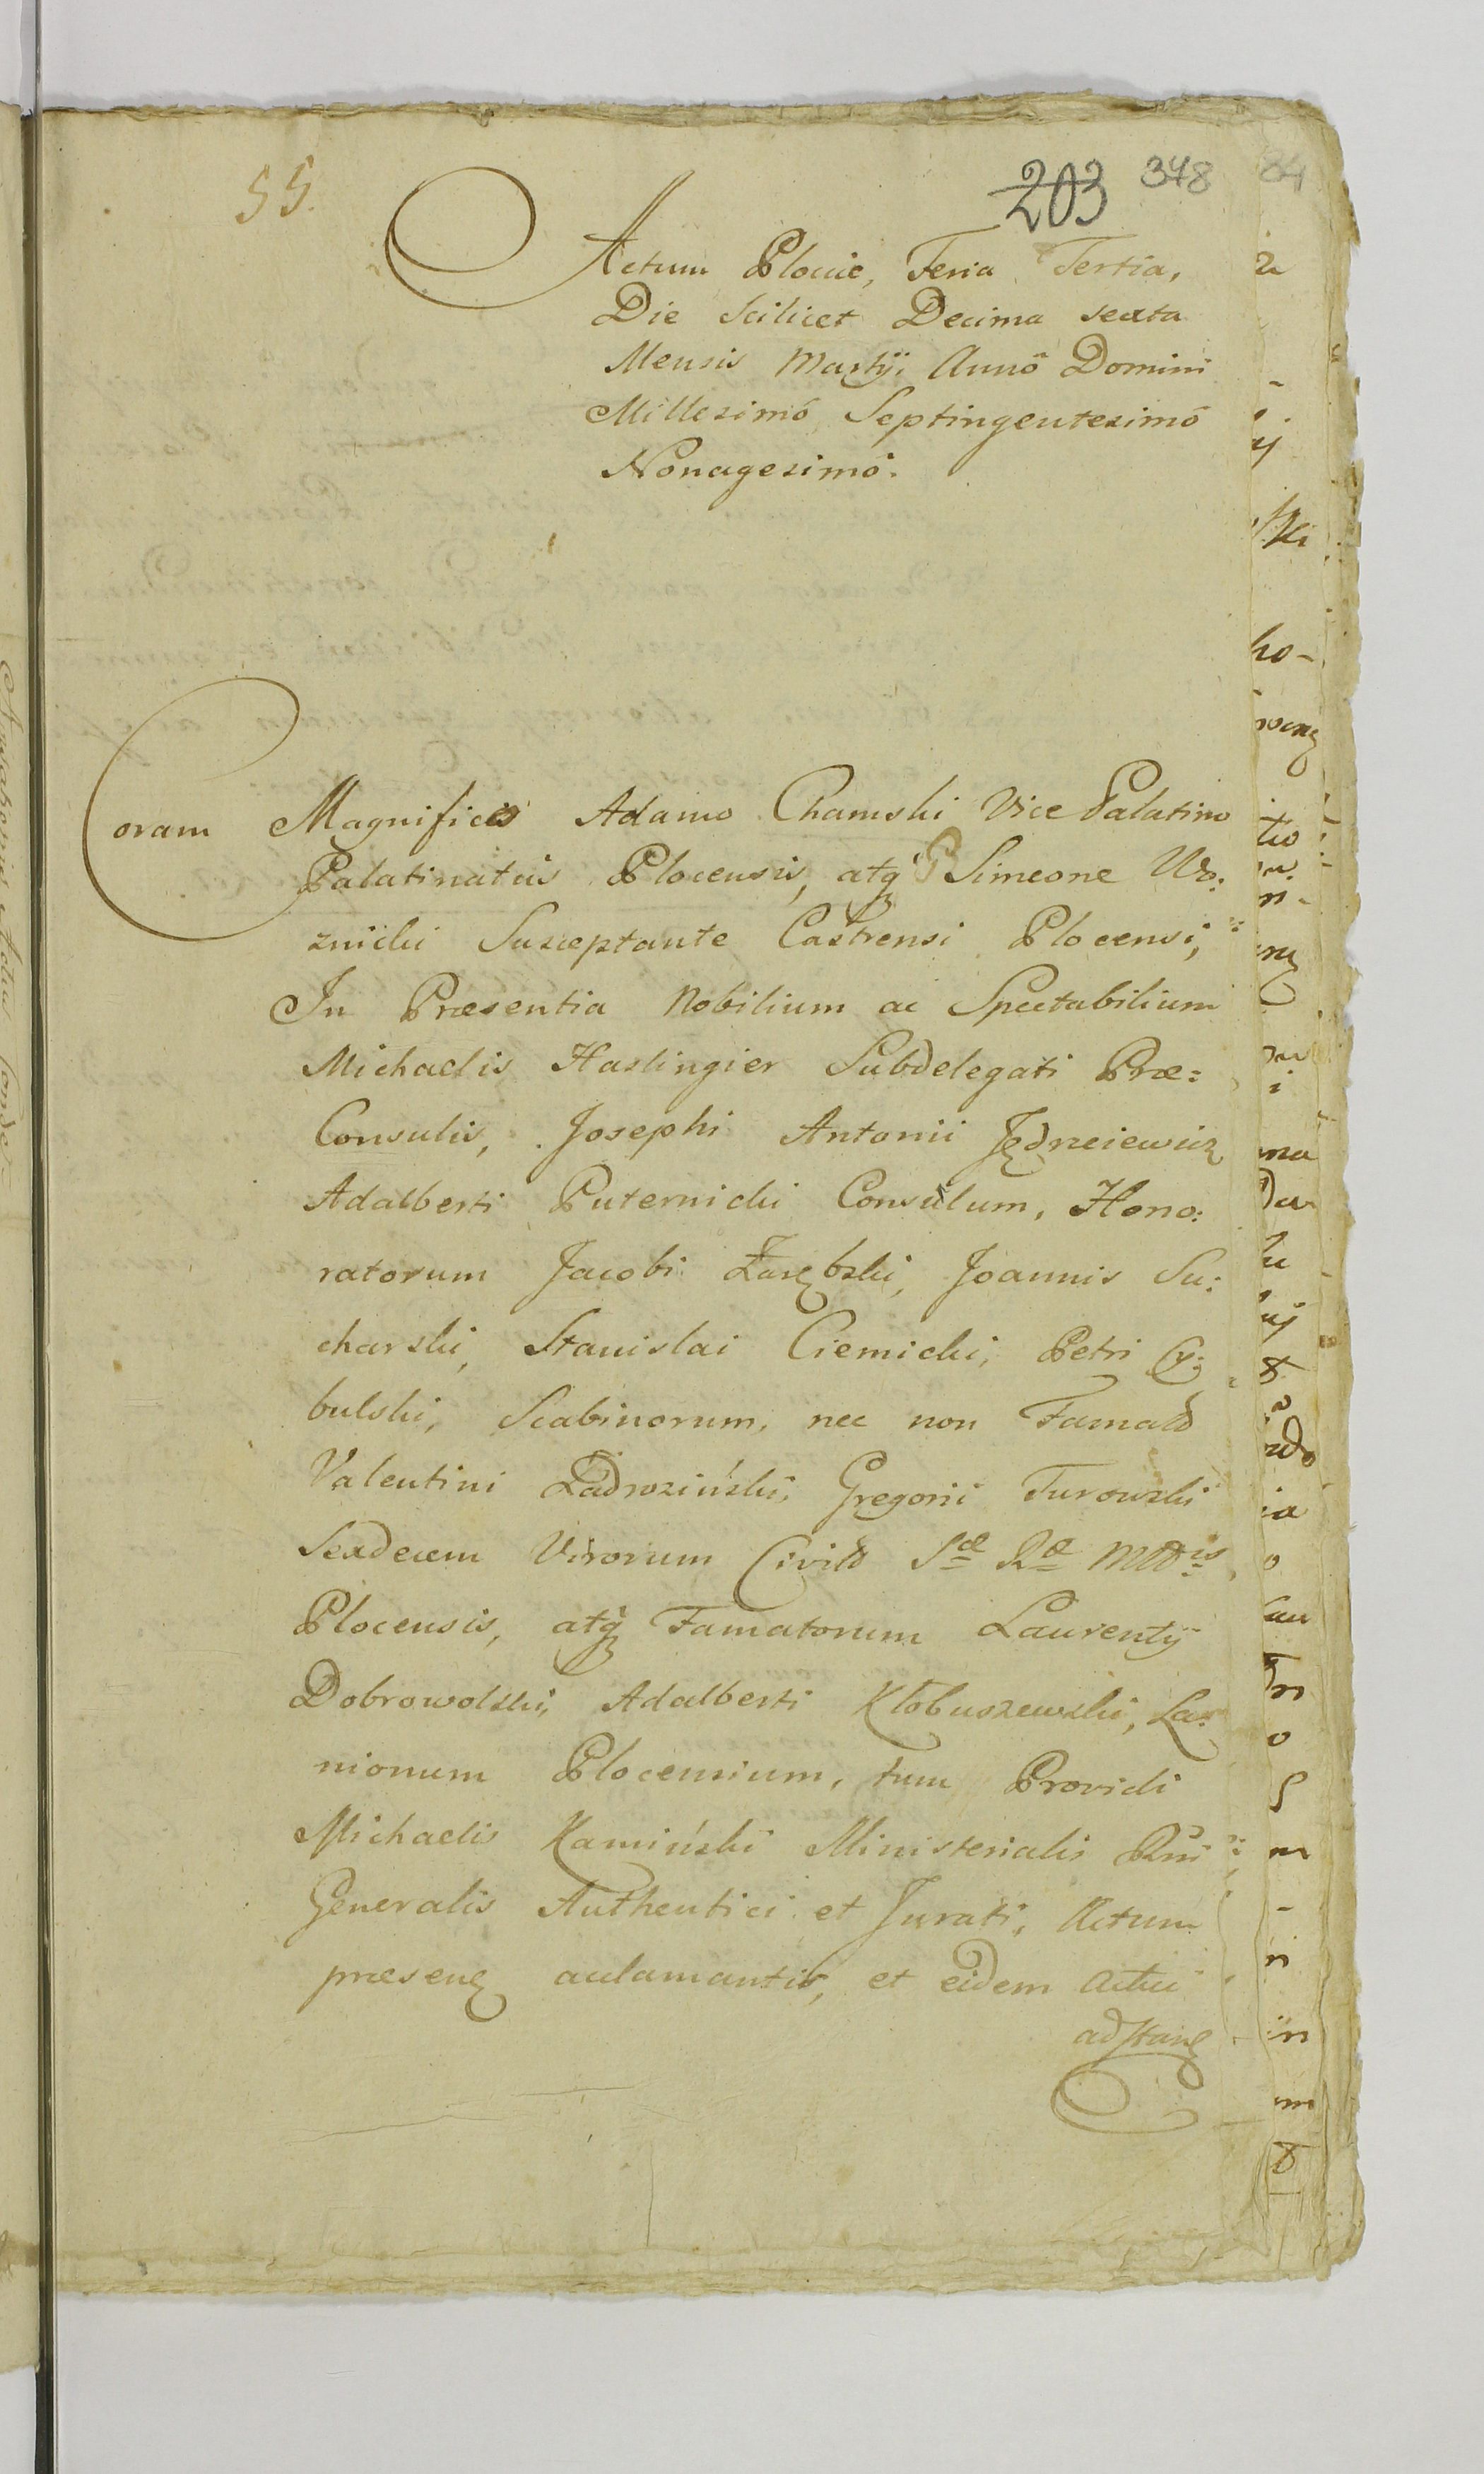 55.
203 348 84
Actum Plociæ, Feria Tertia,
Die Scilicet Decima sexta
Mensis Martÿ, Annô Domini
Millesimô Septingentesimô
Nonagesimô.
Coram Magnifico Adamo Chamski Vice Palatino
Palatinatûs Plocensis, atq̃ Simeone Wo:
znicki Susceptante Castrensi Plocensi,
In Præsentia Nobilium ac Spectabilium
Michaelis Haslingier Subdelegati Præ:
Consulis, Josephi Antonii Jędrzeiewicz
Adalberti Puternicki Consulum, Hono:
ratorum Jacobi Zarębski, Joannis Su:
charski, Stanislai Ciemicki, Petri Cy:
bulski, Scabinorum, nec non Famatᵒ
Valentini Zadroziński, Gregorii Turowski
Sexdecem Virorum Civitᵒ Sæ Ræ Mttis
Plocensis, atq̃ Famatorum Laurentÿ
Dobrowolski, Adalberti Kłobuszewski, La:
nionum Plocensium, tum Providi
Michaelis Kamiński Ministerialis Rñi
Generalis Authentici et Jurati, Actum
præsenꝭ aclamantis, et eidem Actui
adstanꝭ